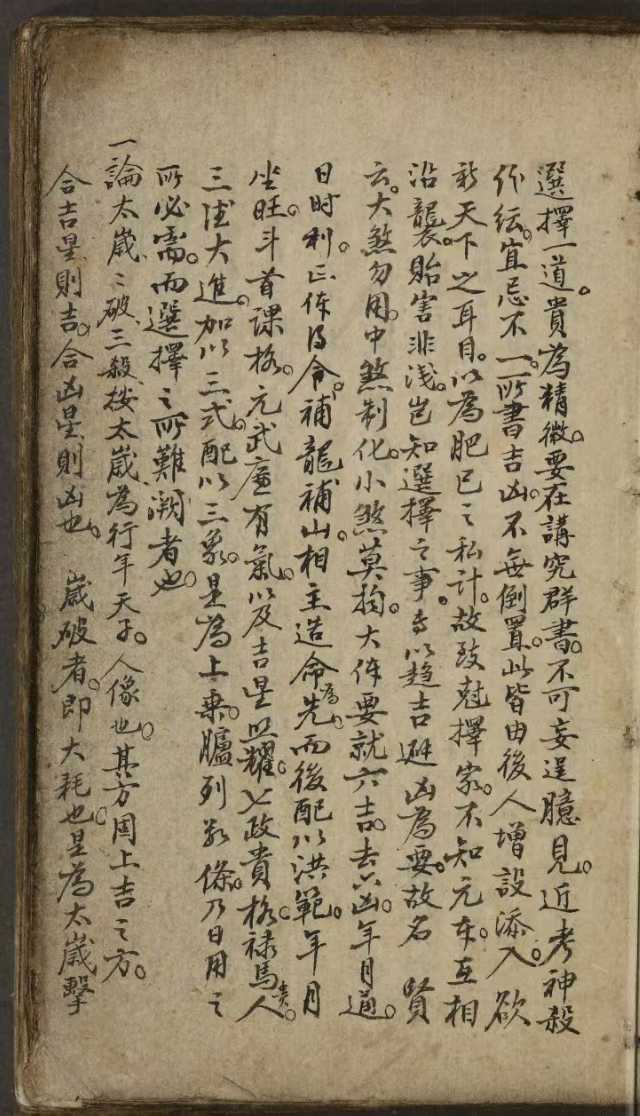 選擇一道。貴為精微。要在講究群書。不可妄逞臆見。近考神殺
作紜。宜忌不一。所書吉凶。不無倒置。此皆由後人增設添入。欲
新天下之耳目。以為肥已之私計。故致尅擇家。不知元本。互相
沿襲。貽害非淺。豈知選擇之事。專以趨吉避凶為要。故名賢
云。大煞勿用。中煞制化。小煞莫拘。大体要就六吉。去六凶。年月道。
日时利。正体得令。補龍補山。相主造命為先。而後配以洪範。年月
坐旺。斗首课格。元武廉有氣。以及吉星照耀。七政貴格。禄馬貴人。
三德大進。加以三式。配以三象。是為上乘。臚列数條。乃日用之
所必需。而選擇之所難闕者也。
一論太歲〻破三殺按太歲為行年天子。人像也。其方固上吉之方。
合吉星則吉。合凶星則凶也。歲破者。即大耗也。星為太歲擊